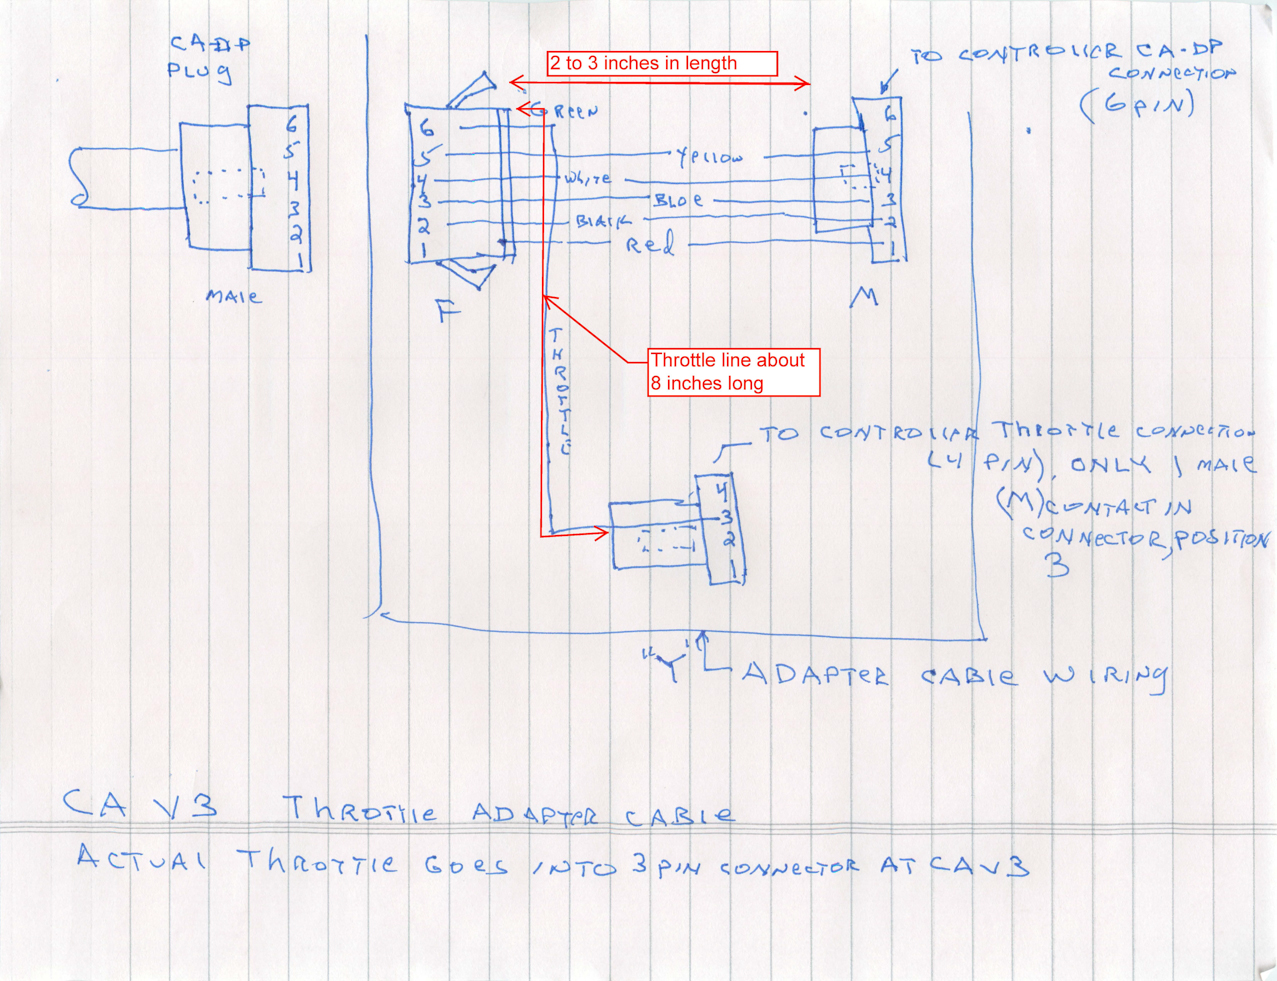 CA-DP
PLUG
6
5
4
3
2
1
MALE
2 to 3 inches in length
TO CONTROLLER CA-DP
CONNECTION
(6 PIN)
GREEN
6
5
4
3
2
1
YELLOW
White
BLUE
BLACK
Red
6
5
4
3
2
1
F
M
THROTTLE
Throttle line about
8 inches long
TO CONTROLLER THROTTLE CONNECTION
(4 PIN), ONLY 1 MALE
(M) CONTACT IN
CONNECTOR, POSITION
3
4
3
2
1
"Y" ADAPTER CABLE WIRING
CA V3 THROTTLE ADAPTER CABLE
ACTUAL THROTTLE GOES INTO 3 PIN CONNECTOR AT CAV3